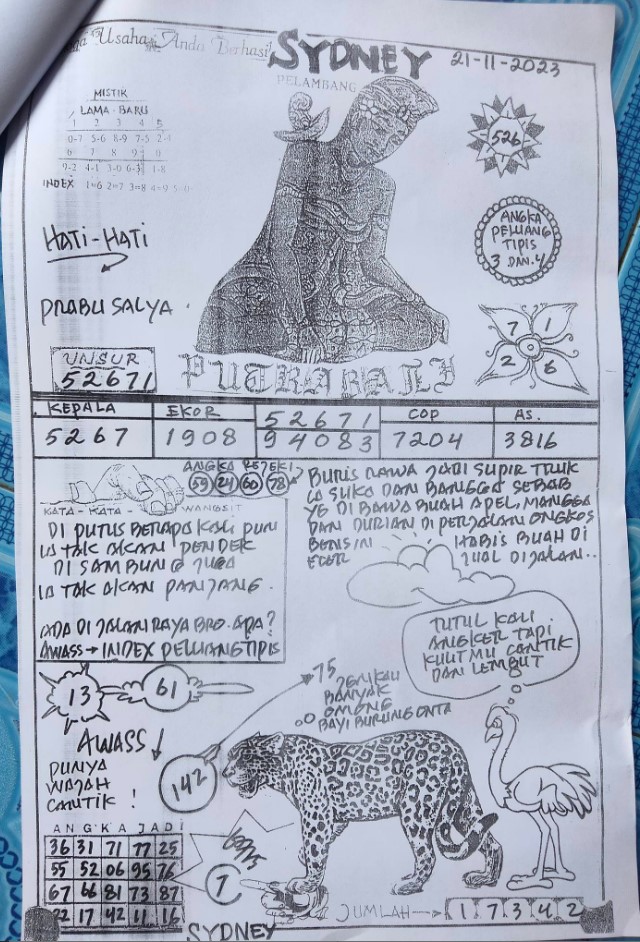 Usaha Anda Berhasil
SYDNEY
21-11-2023
PELAMBANG
MISTIK
LAMA - BARU
1 2 3 4 5
0-7 5-6 8-9 7-5 2-4
6 7 8 9 0
9-2 4-1 3-0 6-3 1-8
INDEX 1=6 2=7 3=8 4=9 5=0
526
ANGKA
PELUANG
TIPIS
3 DAN 4
HATI-HATI
PRABU SALYA
7 1
2 6
UNSUR
52671
PUTRA BALI
KEPALA EKOR 52671 COP AS.
5267 1908 94083 7204 3816
ANGKA REJEKI
59 24 60 78
KATA - KATA - WANGSIT
DI PUTUS BERAPA KALI PUN
IA TAK AKAN PENDEK
DI SAMBUNG JUGA
IA TAK AKAN PANJANG.
ADA DI JALAN RAYA BRO. APA?
AWASS → INDEX PELUANG TIPIS
BURIS RAWA JADI SUPIR TRUK
IA SUKA DAN BANGGA SEBAB
YG DI BAWA BUAH APEL, MANGGA
DAN DURIAN DI PERJALAN ONGKOS
BENSIN HABIS BUAH DI
ECER JUAL DI JALAN..
TUTUL KALI
ANGKER TAPI
KULIT MU CANTIK
DAN LEMBUT
13
61
75
BANYAK
OMONG
BAYI BURUNG ONTA
AWASS
142
PUNYA
WAJAH
CANTIK !
ANGKA JADI
36 31 71 77 25
55 52 06 95 76
67 66 81 73 87
22 17 42 11 16
7
SYDNEY
JUMLAH → 1 7 3 4 2